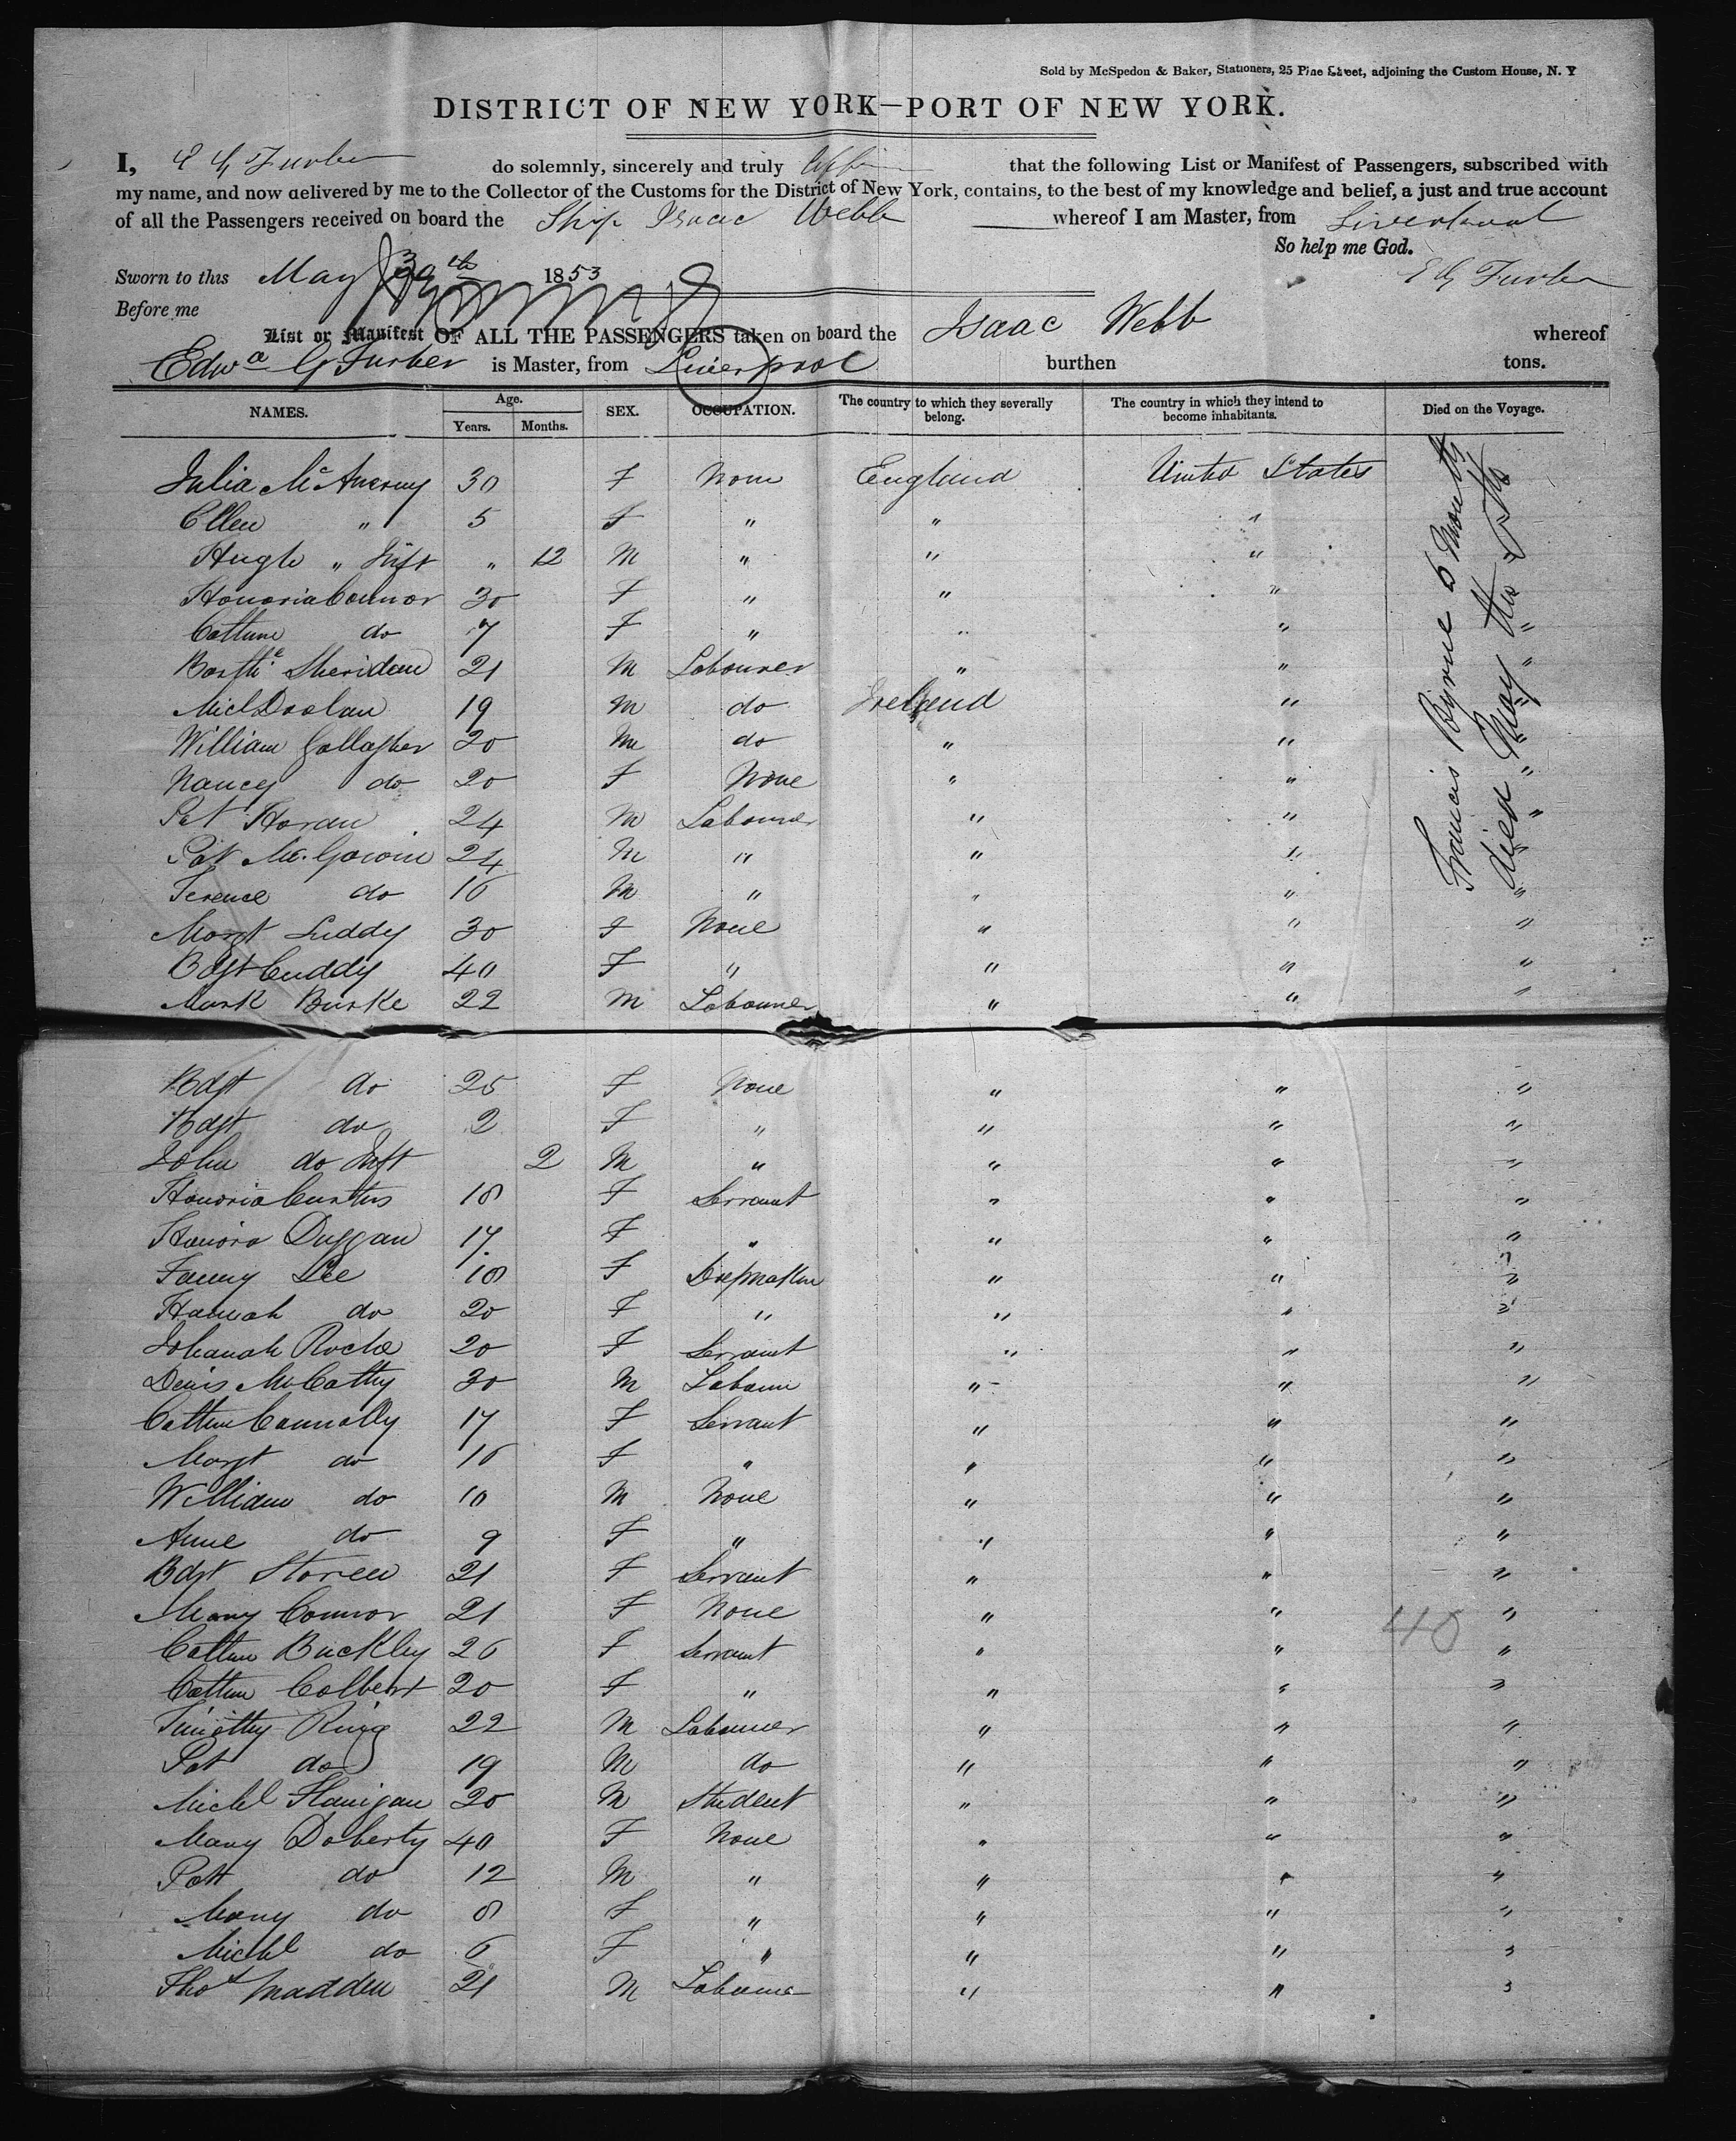 Sold by McSpedon & Baker, Stationers, 25 Pine Street, adjoining the Custom House, N. Y
DISTRICT OF NEW YORK—PORT OF NEW YORK.
I, E G Furber do solemnly, sincerely and truly affirm that the following List or Manifest of Passengers, subscribed with
my name, and now delivered by me to the Collector of the Customs for the District of New York, contains, to the best of my knowledge and belief, a just and true account
of all the Passengers received on board the Ship Isaac Webb whereof I am Master, from Liverpool
So help me God.
Sworn to this May 1853 E G Furber
Before me
List or Manifest OF ALL THE PASSENGERS taken on board the Isaac Webb whereof
Edwd G Furber is Master, from Liverpool burthen tons.
NAMES. Age. Years. Months. SEX. OCCUPATION. The country to which they severally belong. The country in which they intend to become inhabitants. Died on the Voyage.
Julia 30 F None England United States
Ellen " 5 F " " "
Hugh " Inft " 12 M " " "
Honoria Connor 30 F " " "
Cathne do 7 F " " "
Barth. Sheridan 21 M Labourer " " "
Micl Doolan 19 M do Ireland " "
William Gallagher 20 M do " " "
Nancy do 20 F None " " "
Pat Horan 24 M Labourer " " "
Pat Mc.Gowin 24 M " " " "
Terence do 16 M " " " "
Margt Luddy 30 F None " " "
Bdgt Cuddy 40 F " " " "
Mark Burke 22 M Labourer " " "
Francis Byrne 5 Months
died May the
Bdgt do 25 F None " " "
Bdgt do 2 F " " " "
John do Inft 2 M " " " "
Honoria 18 F Servant " " "
Honora Duggan 17 F " " " "
Fanny Lee 18 F " " "
Hannah do 20 F " " " "
Johanah Roche 20 F Servant " " "
Denis McCathy 30 M Labourer " " "
Cathne Connolly 17 F Servant " " "
Margt do 16 F " " " "
William do 10 M None " " "
Anne do 9 F " " " "
Bdgt Storen 21 F Servant " " "
Mary Connor 21 F None " " "
40
Cathne Buckley 26 F Servant " " "
Cathne Colbert 20 F " " " "
Timothy Ring 22 M Labourer " " "
Pat do 19 M do " " "
Michl Flanigan 20 M Student " " "
Mary Doherty 40 F None " " "
Patt do 12 M " " " "
Mary do 8 F " " " "
Michl do 6 F " " " "
Thos Madden 21 M Labourer " " "